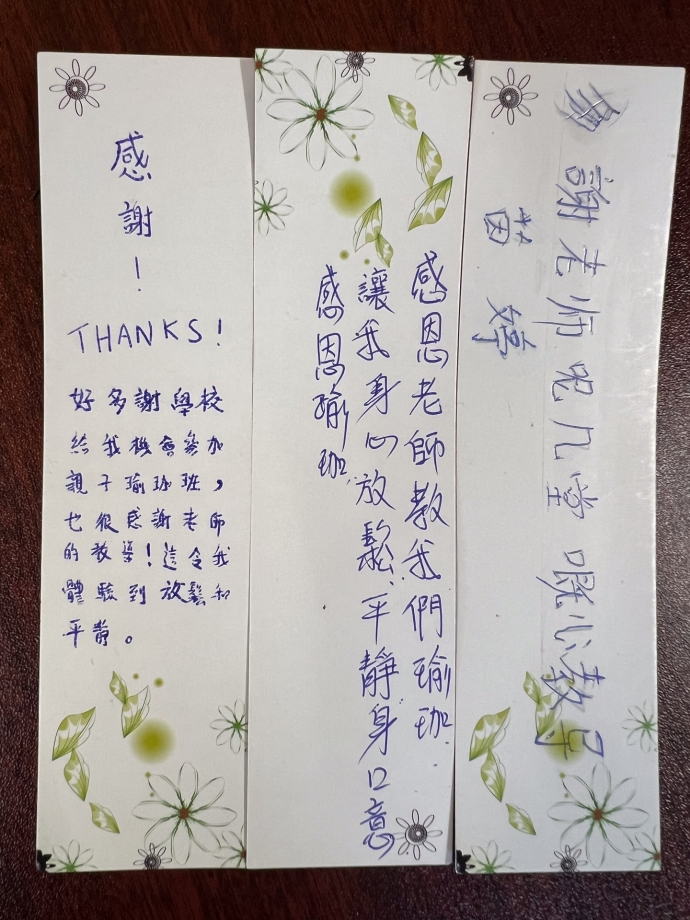 感謝！
THANKS!
好多謝學校
給我機會參加
親子瑜珈班，
也很感謝老師
的教學！這令我
體驗到放鬆和
平靜。
感恩老師教我們瑜珈
讓我身心放鬆、平靜身口意
感恩瑜珈
多謝老师呢几堂嘅心教导
茵婷